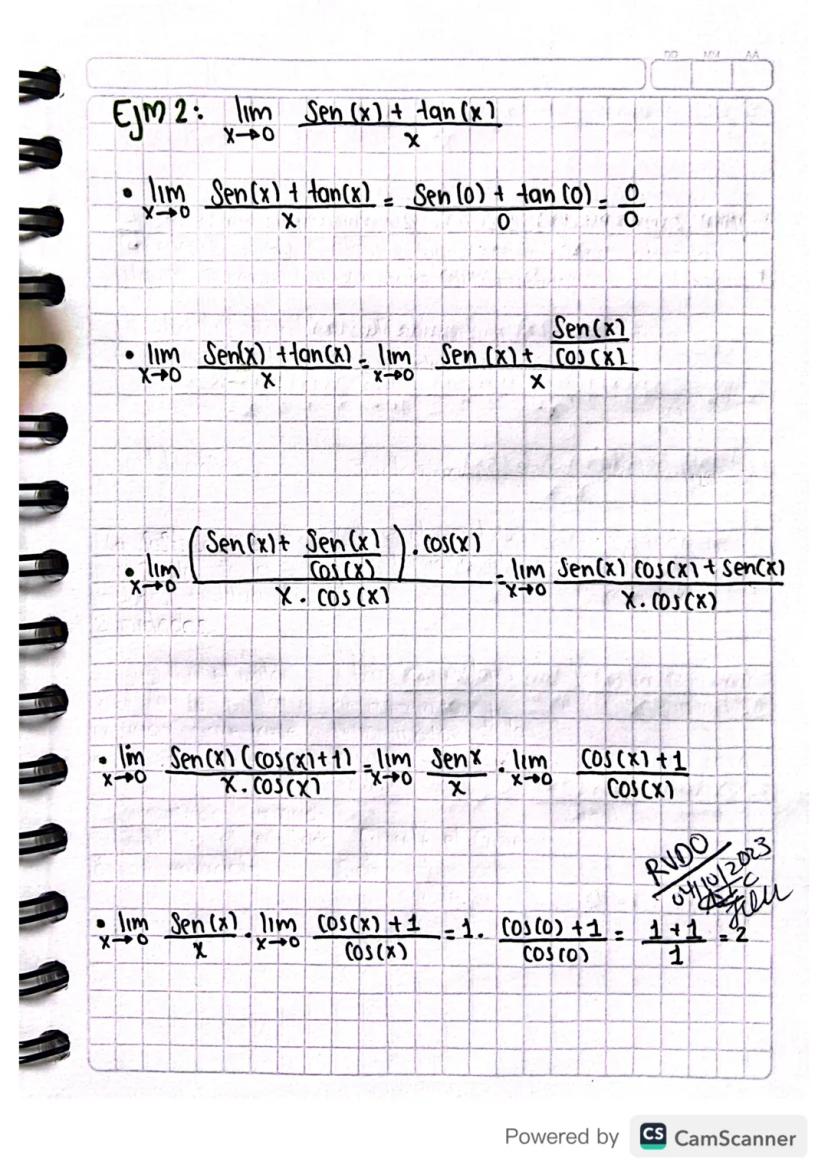 DD MM AA
Ejm 2: lim x→0 Sen(x) + tan(x) / x
• lim x→0 Sen(x) + tan(x) / x = Sen(0) + tan(0) / 0 = 0/0
• lim x→0 Sen(x) + tan(x) / x = lim x→0 Sen(x) + Sen(x)/cos(x) / x
• lim x→0 (Sen(x) + Sen(x)/cos(x)) . cos(x) / x . cos(x) = lim x→0 Sen(x) cos(x) + sen(x) / x . cos(x)
• lim x→0 Sen(x) (cos(x) + 1) / x . cos(x) = lim x→0 Sen x / x . lim x→0 cos(x) + 1 / cos(x)
RVDO
04/10/2023
• lim x→0 Sen(x) / x . lim x→0 cos(x) + 1 / cos(x) = 1 . cos(0) + 1 / cos(0) = 1 + 1 / 1 = 2
Powered by CS CamScanner